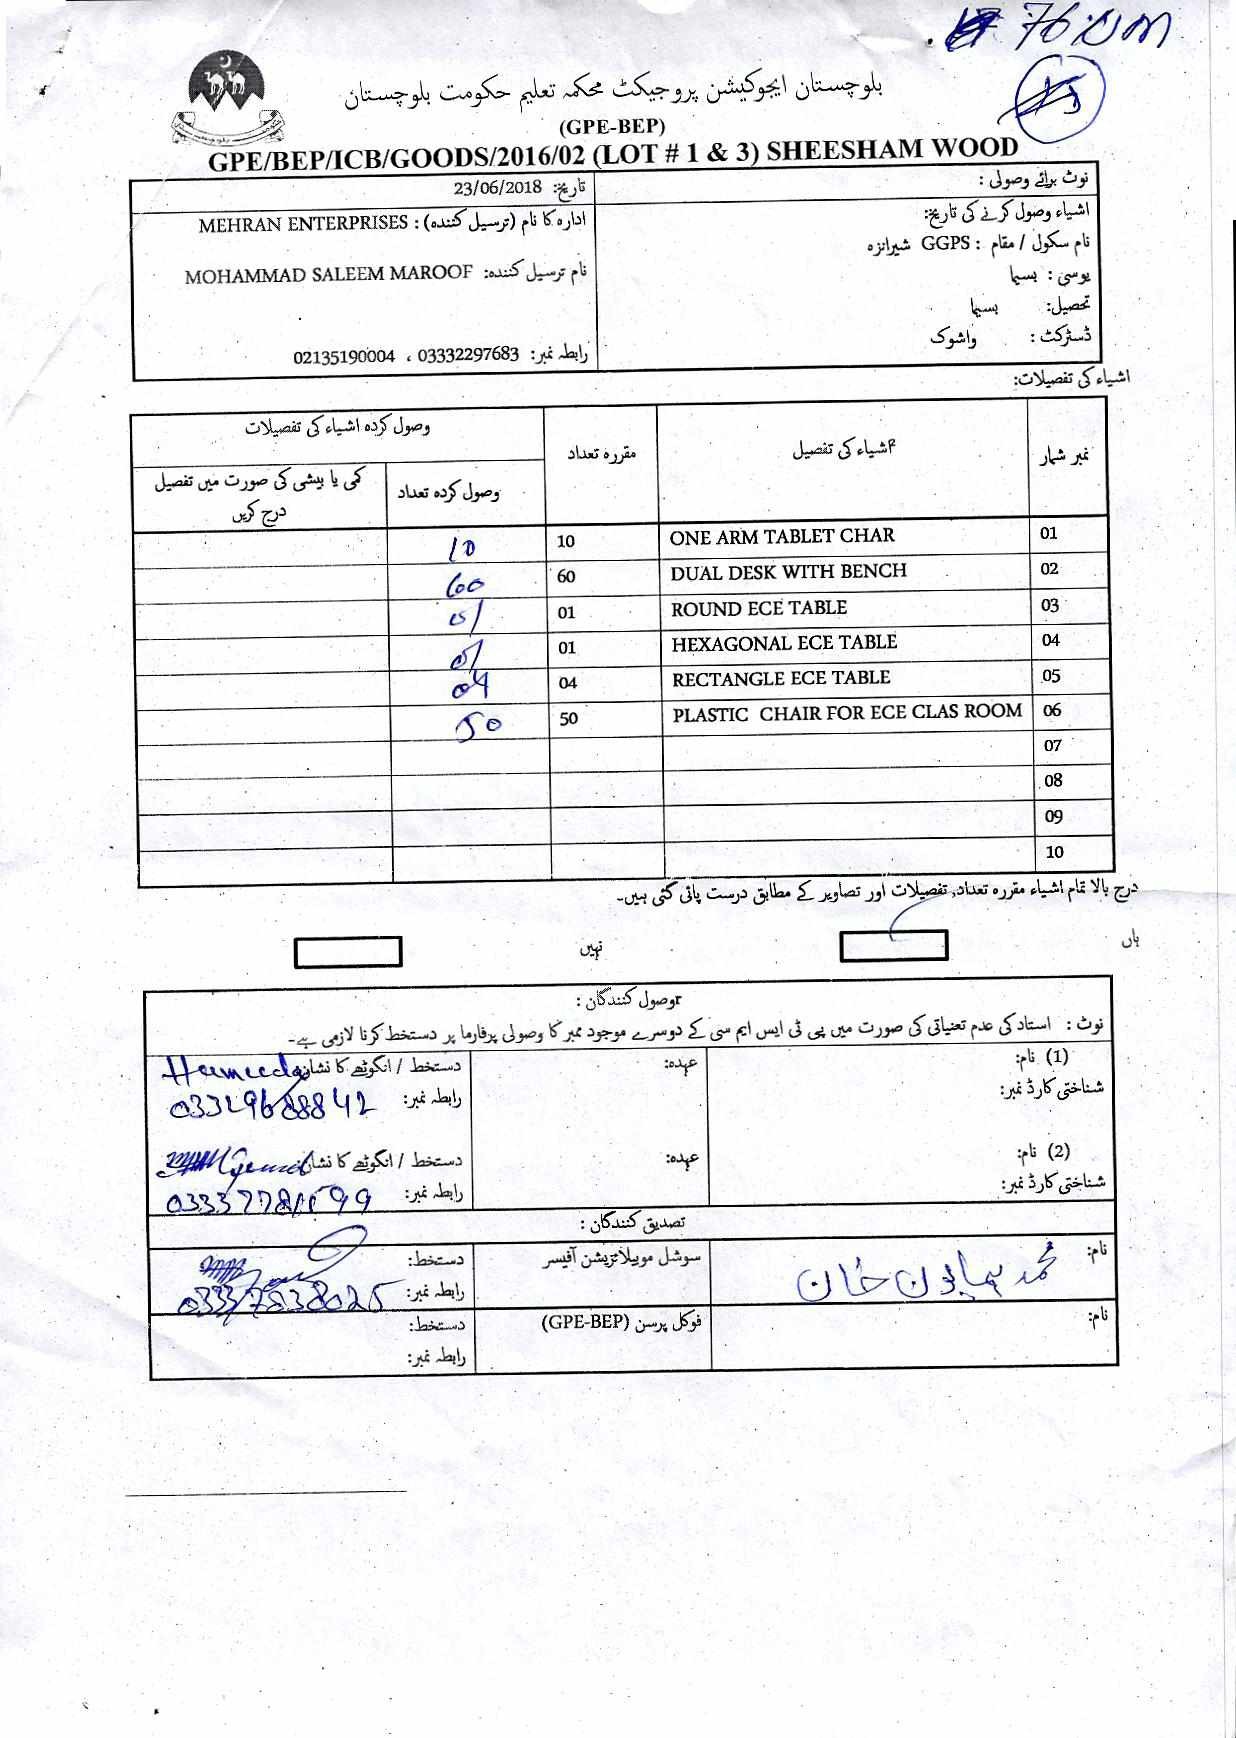 76
15
بلوچستان ایجوکیشن پروجیکٹ محکمہ تعلیم حکومت بلوچستان
(GPE-BEP)
GPE/BEP/ICB/GOODS/2016/02 (LOT # 1 & 3) SHEESHAM WOOD
نوٹ برائے وصولی :
تاریخ: 23/06/2018
اشیاء وصول کرنے کی تاریخ:
ادارہ کا نام (ترسیل کنندہ) : MEHRAN ENTERPRISES
نام سکول / مقام : GGPS شیرانزہ
نام ترسیل کنندہ: MOHAMMAD SALEEM MAROOF
یوسی : بسیما
تحصیل: بسیما
ڈسٹرکٹ : واشوک
رابطہ نمبر: 03332297683 ، 02135190004
اشیاء کی تفصیلات:
نمبر شمار اشیاء کی تفصیل مقررہ تعداد وصول کردہ اشیاء کی تفصیلات
وصول کردہ تعداد کمی یا بیشی کی صورت میں تفصیل درج کریں
01 ONE ARM TABLET CHAR 10 10
02 DUAL DESK WITH BENCH 60 60
03 ROUND ECE TABLE 01 01
04 HEXAGONAL ECE TABLE 01 01
05 RECTANGLE ECE TABLE 04 04
06 PLASTIC CHAIR FOR ECE CLAS ROOM 50 50
07
08
09
10
درج بالا تمام اشیاء مقررہ تعداد, تفصیلات اور تصاویر کے مطابق درست پائی گئی ہیں۔
ہاں نہیں
وصول کنندگان :
نوٹ : استاد کی عدم تعیناتی کی صورت میں پی ٹی ایس ایم سی کے دوسرے موجود ممبر کا وصولی پرفارما پر دستخط کرنا لازمی ہے۔
(1) نام: عہدہ: دستخط / انگوٹھے کا نشان: Hameeda
شناختی کارڈ نمبر: رابطہ نمبر: 03329688842
(2) نام: عہدہ: دستخط / انگوٹھے کا نشان:
شناختی کارڈ نمبر: رابطہ نمبر:
تصدیق کنندگان :
نام: محمد ہمایون خان سوشل موبیلائزیشن آفیسر دستخط:
رابطہ نمبر: 03337838025
نام: فوکل پرسن (GPE-BEP) دستخط:
رابطہ نمبر: